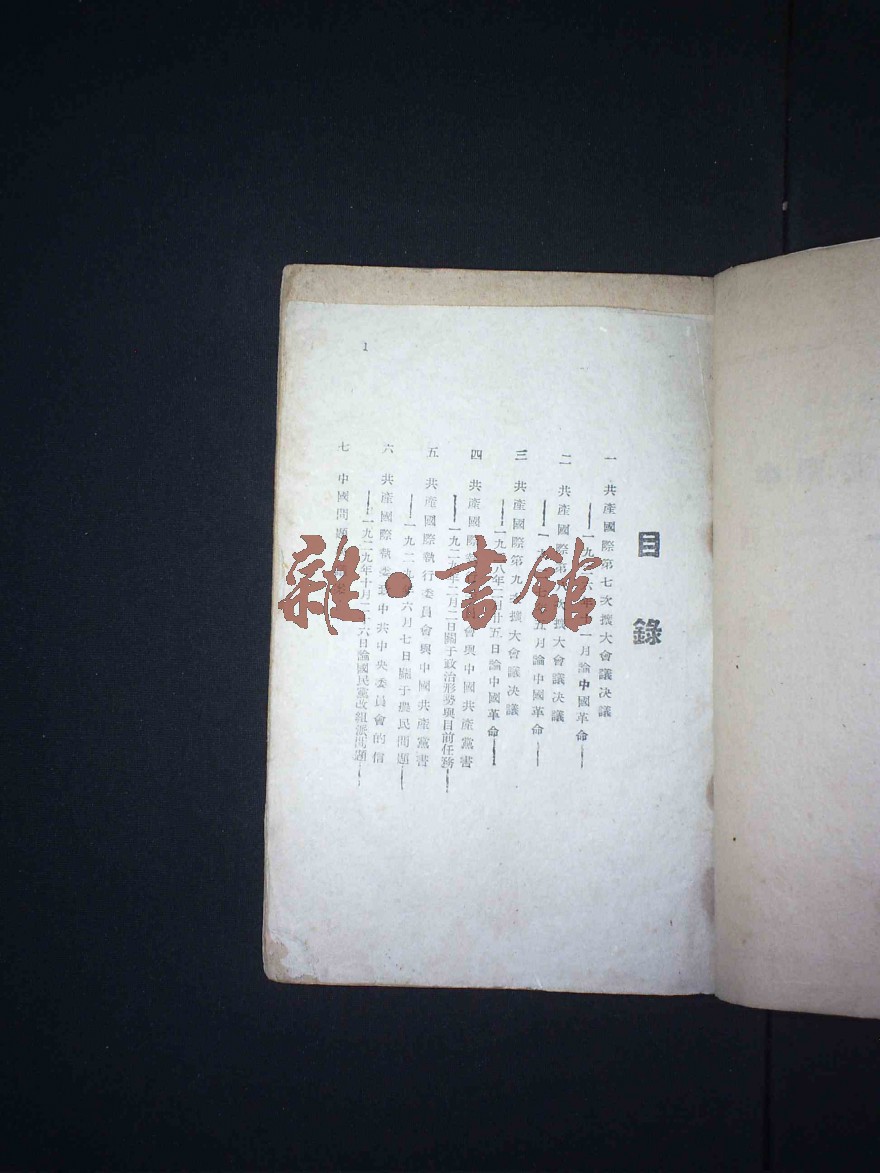 目錄
一 共產國際第七次擴大會議決議
——一九二六年十一月論中國革命——
二 共產國際第 擴大會議決議
——一九 月論中國革命——
三 共產國際第九次擴大會議決議
——一九二八年二月廿五日論中國革命——
四 共產國際執 會與中國共產黨書
——一九二九年二月二日關于政治形勢與目前任務——
五 共產國際執行委員會與中國共產黨書
——一九二九年六月七日關于農民問題——
六 共產國際執委致中共中央委員會的信
——一九二九年十月二十六日論國民黨改組派問題——
七 中國問題
1
雜·書館